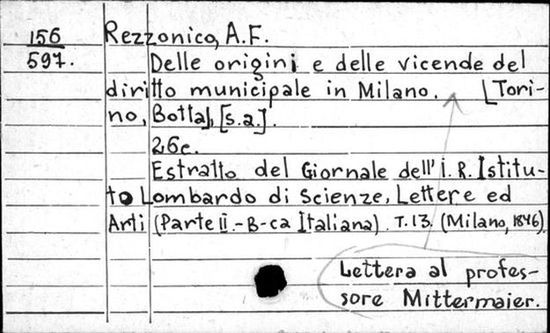 156 Rezzonico, A.F.
597. Delle origini e delle vicende del
diritto municipale in Milano. [Tori-
no, Botta], [s.a.].
26c.
Estratto del Giornale dell' I. R. Istitu-
to Lombardo di Scienze, Lettere ed
Arti (Parte II.-B-ca Italiana). T.13. (Milano, 1846)
Lettera al profes-
sore Mittermaier.